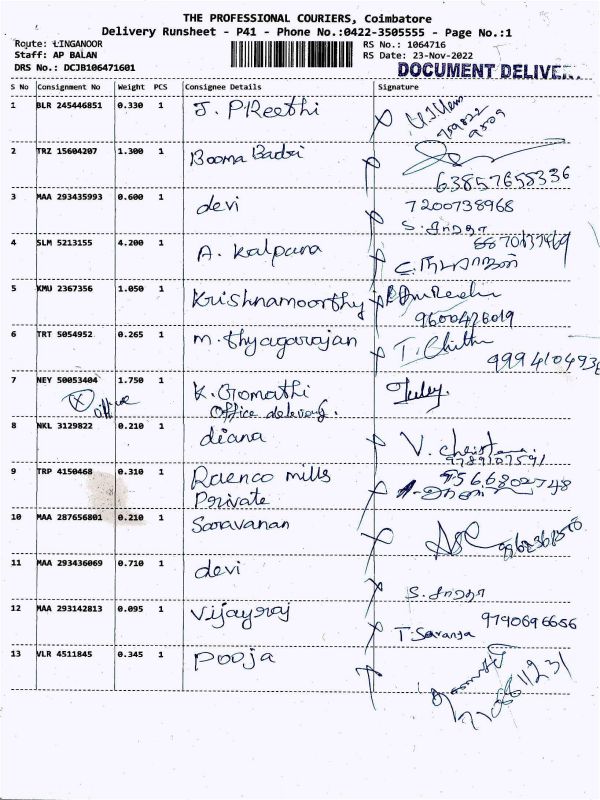 THE PROFESSIONAL COURIERS, Coimbatore
Delivery Runsheet - P41 - Phone No.:0422-3505555 - Page No.:1
Route: LINGANOOR RS No.: 1064716
Staff: AP BALAN RS Date: 23-Nov-2022
DRS No.: DCJB106471601 DOCUMENT
S No Consignment No Weight PCS Consignee Details Signature
1 BLR 245446851 0.330 1 J. PReethi
2 TRZ 15604207 1.300 1 Booma Badri
63857658336
3 MAA 293435993 0.600 1 devi 7200738968
S. சாரதா
4 SLM 5213155 4.200 1 A. Kalpana
5 KMU 2367356 1.050 1 Krishnamoorthy
9600426019
6 TRT 5054952 0.265 1 m. thyagarajan T. Chithra
7 NEY 50053404 1.750 1 K. Gomathi
office Office
8 NKL 3129822 0.210 1 diana V.
9789107591
9 TRP 4150468 0.310 1 Raenco mills 9566802748
Private
10 MAA 287656801 0.210 1 Saravanan
11 MAA 293436069 0.710 1 devi S. சாரதா
12 MAA 293142813 0.095 1 Vijayraj 9790696656
T. Saranya
13 VLR 4511845 0.345 1 Pooja